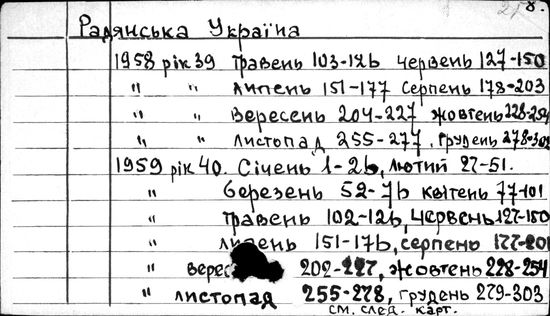 Радянська Україна
1958 рік 39 травень 103-126 червень 127-150
" " липень 151-177 серпень 178-203
" " вересень 204-227 жовтень 228-254
" " листопад 255-277, грудень 278-302
1959 рік 40. Січень 1-26, лютий 27-51.
" березень 52-76 квітень 77-101
" травень 102-126, червень 127-150
" липень 151-176, серпень 177-201
" 202-227, жовтень 228-254
" листопад 255-278, грудень 279-303
см. след. карт.